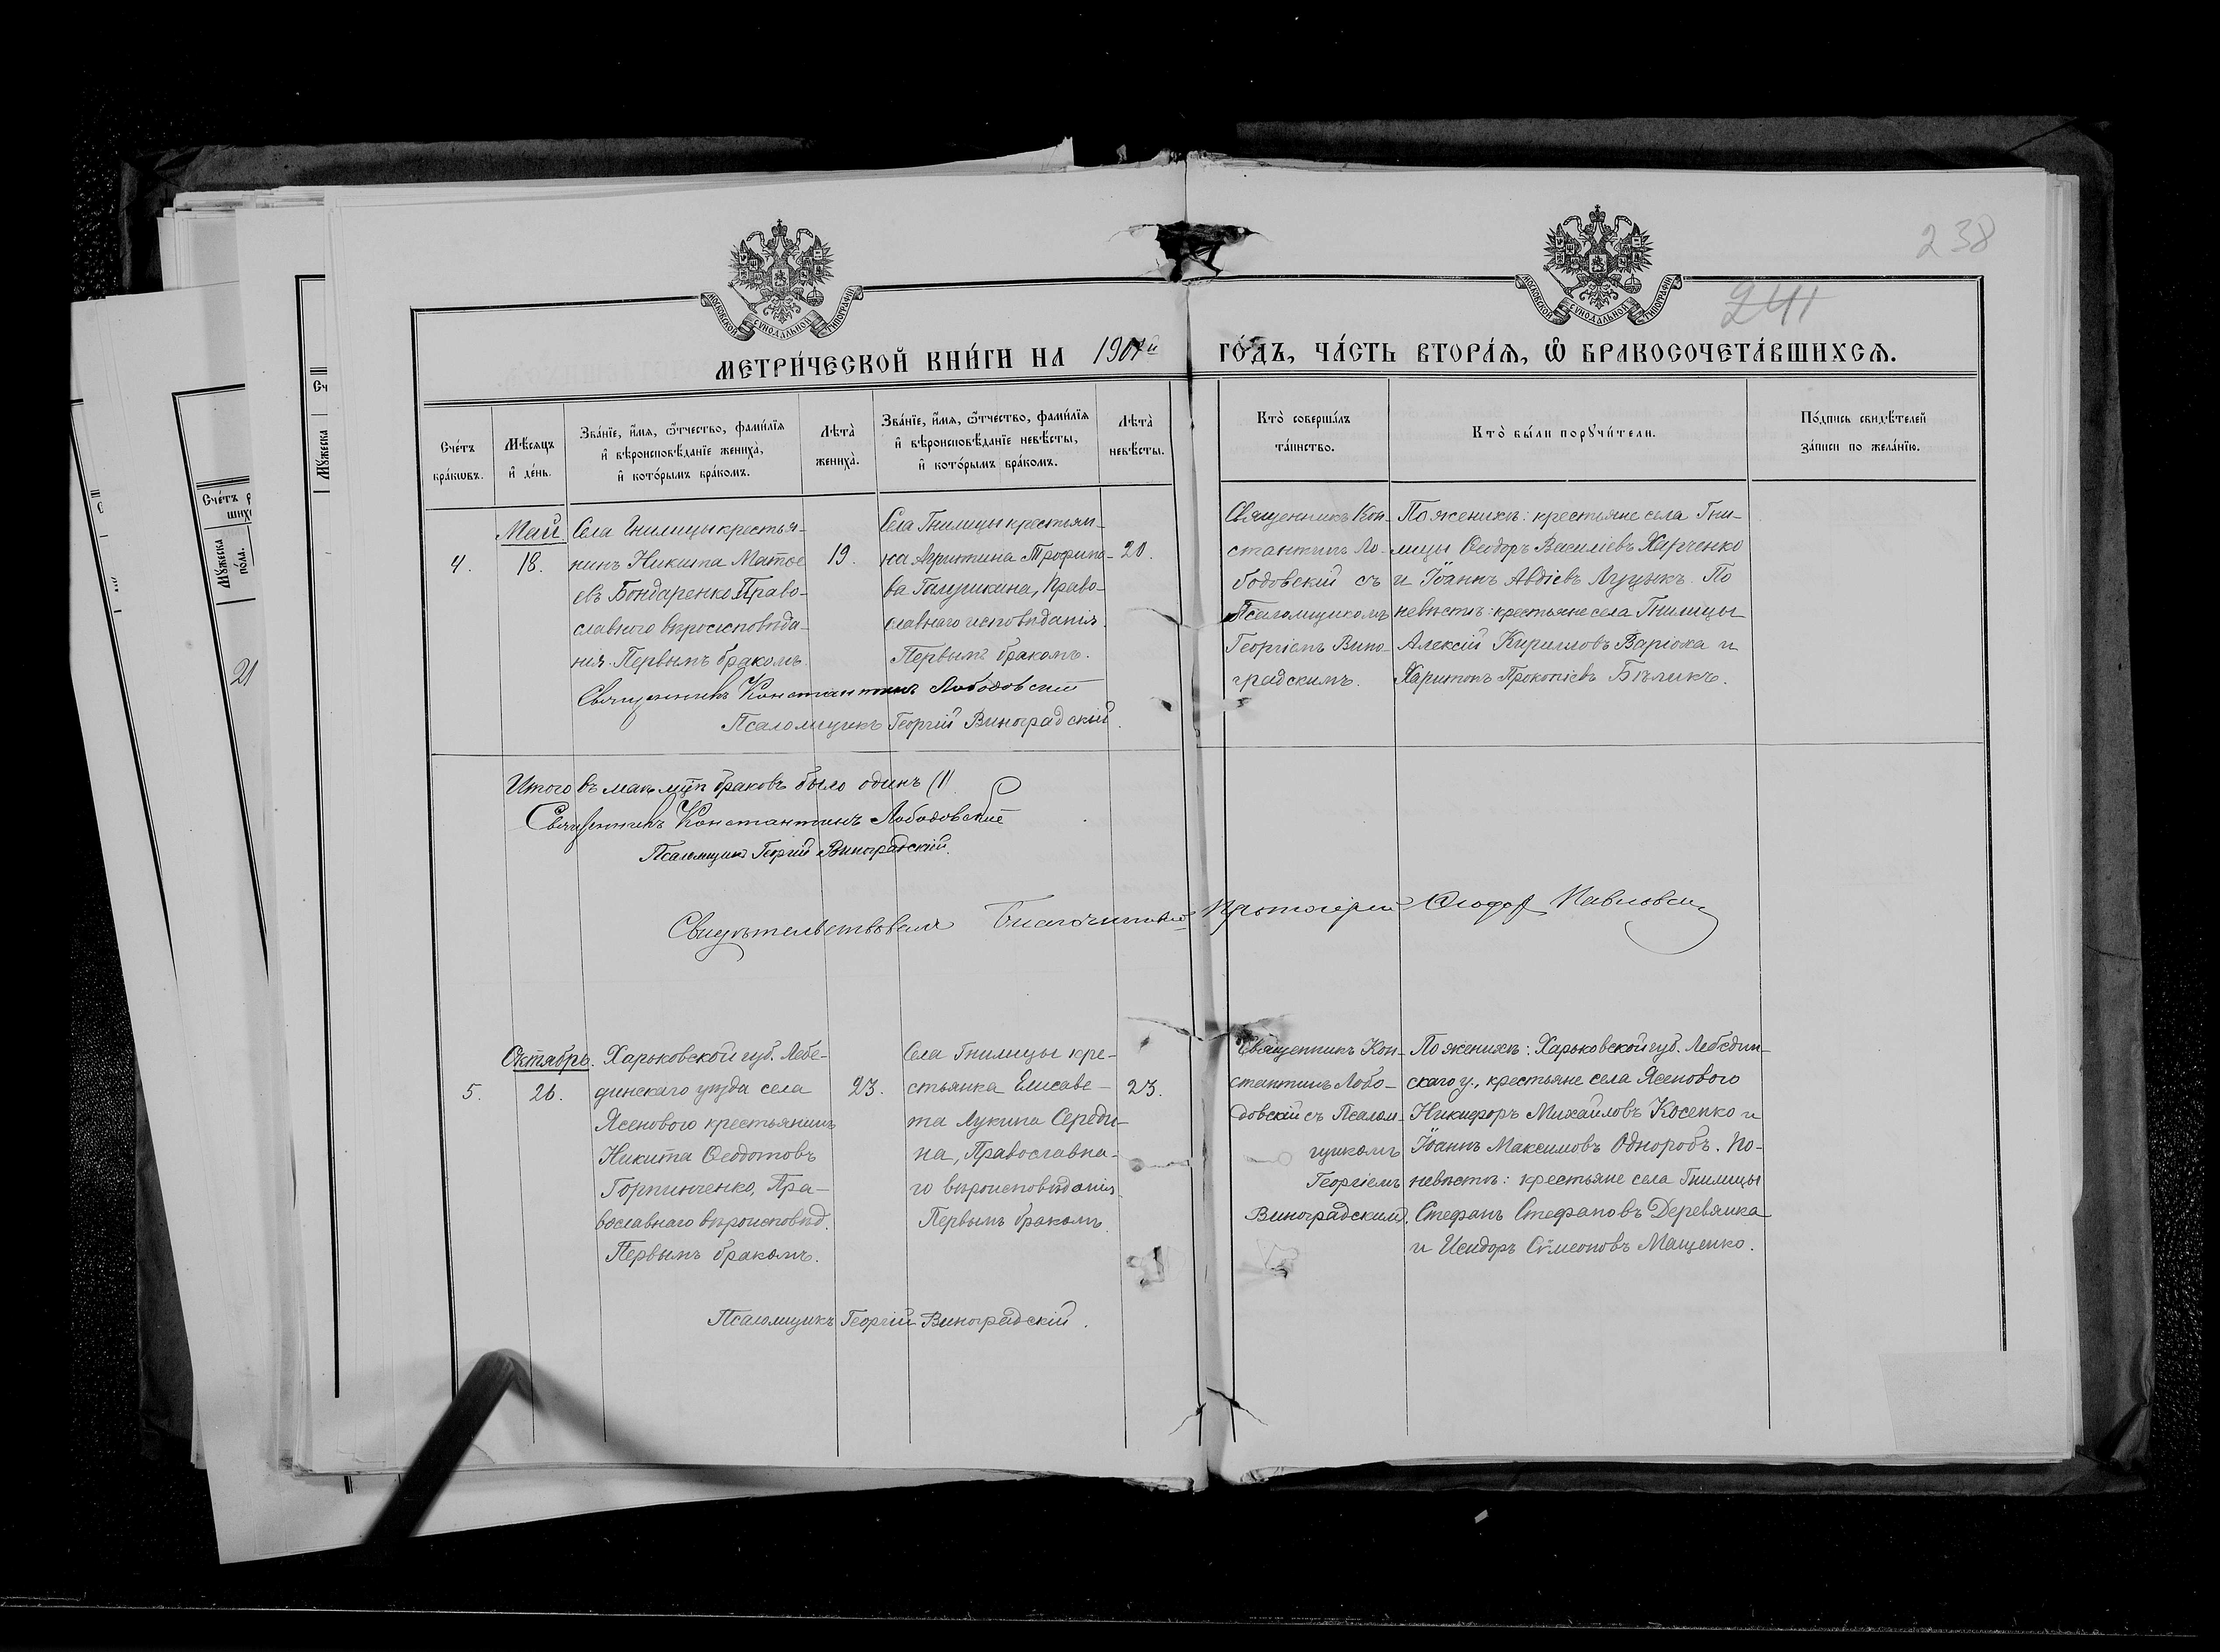 238
241
МОСКОВСКОЙ СѴНОДАЛЬНОЙ ТИПОГРАФІИ
МОСКОВСКОЙ СѴНОДАЛЬНОЙ ТИПОГРАФІИ
МЕТРИ́ЧЕСКОЙ КНИ́ГИ НА
ГО́ДЪ, ЧА́СТЬ ВТОРА́Я, Ѿ БРАКОСОЧЕТА́ВШИХСЯ.
Сче́тъ бра́кѡвъ.
Мѣ́сяцъ и҆ де́нь.
Зва́нїе, и҆́мя, ѻ҆́тчество, фами́лїя
и҆ вѣроисповѣ́данїе жениха̀,
и҆ кото́рымъ бра́комъ.
Лѣ́та̀ жениха̀.
Зва́нїе, и҆́мя, ѻ҆́тчество, фами́лїя
и҆ вѣроисповѣ́данїе невѣ́сты,
и҆ кото́рымъ бра́комъ.
Лѣ́та̀ невѣ́сты.
Кто̀ соверши́лъ
та́инство.
Кто̀ бы́ли порꙋчи́тели.
По́дпись свидѣ́телей
за́писи по жела́нїю.
4.
Май
18.
Села Гнилицы крестья-
нинъ Никита Матѳе
евъ Бондаренко Право-
славного вѣроисповѣда-
нія. Первымъ бракомъ.
19.
Села Гнилицы крестьян-
на Трофимо-
ва Право-
славнаго исповѣданія.
Первымъ бракомъ.
20.
Священникъ Кон-
стантинъ Ло-
бодовскій съ
Псаломщикомъ
Георгіемъ Вино-
градскимъ.
По женихѣ: крестьяне села Гни-
лицы Ѳеодоръ Василіевъ Харченко
и Іоаннъ Авдіевъ Луцыкъ. По
невѣстѣ: крестьяне села Гнилицы
Алексій Кирилловъ Варіока и
Харитонъ Прокопіевъ Бѣликъ.
Священникъ Константинъ Лободовскій
Псаломщикъ Георгій Виноградскій.
Итого въ маѣ м-цѣ браковъ было одинъ (1)
Священникъ Константинъ Лободовскій
Псаломщикъ Георгій Виноградскій.
Свидѣтельствовалъ Благочинный Протоіерей Ѳеодоръ
5.
Октябрь.
26.
Харьковской губ. Лебе-
динскаго уѣзда села
Ясенового крестьянинъ
Никита Ѳеодотовъ
Горпинченко, Пра-
вославнаго вѣроисповѣд.
Первымъ бракомъ.
23.
Села Гнилицы кре-
стьянка Елисаве-
та Лукина Середи-
на, Православна-
го вѣроисповѣданія
Первымъ бракомъ.
23.
Священникъ Кон-
стантинъ Лобо-
довскій съ Псалом-
щикомъ
Георгіемъ
Виноградскимъ.
По женихѣ: Харьковской губ. Лебедин-
скаго у., крестьяне села Ясенового
Никифоръ Михаиловъ Косенко и
Іоаннъ Максимовъ Однороbъ. По-
невѣстѣ: крестьяне села Гнилицы
Стефанъ Стефановъ Деревянка
и Исидоръ Сѵмеоновъ Мащенко.
Псаломщикъ Георгій Виноградскій.